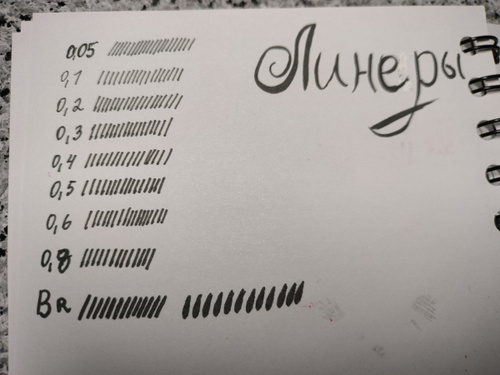 Линеры
0,05
0,1
0,2
0,3
0,4
0,5
0,6
0,8
BR